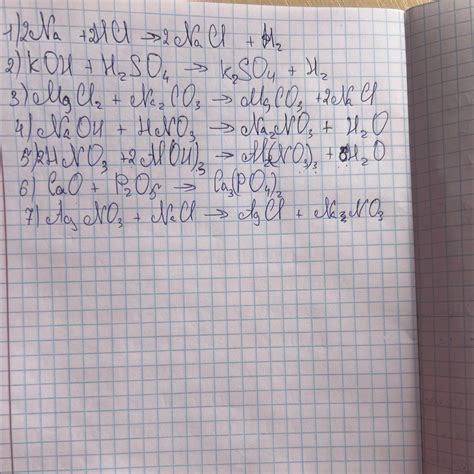 1) 2Na + 2HCl → 2NaCl + H₂
2) KOH + H₂SO₄ → K₂SO₄ + H₂
3) MgCl₂ + Na₂CO₃ → MgCO₃ + 2NaCl
4) NaOH + HNO₃ → Na₂NO₃ + H₂O
5) 2HNO₃ + 2Al(OH)₃ → Al₂(NO₃)₃ + 3H₂O
6) CaO + P₂O₅ → Ca₃(PO₄)₂
7) AgNO₃ + NaCl → AgCl + Na₂NO₃